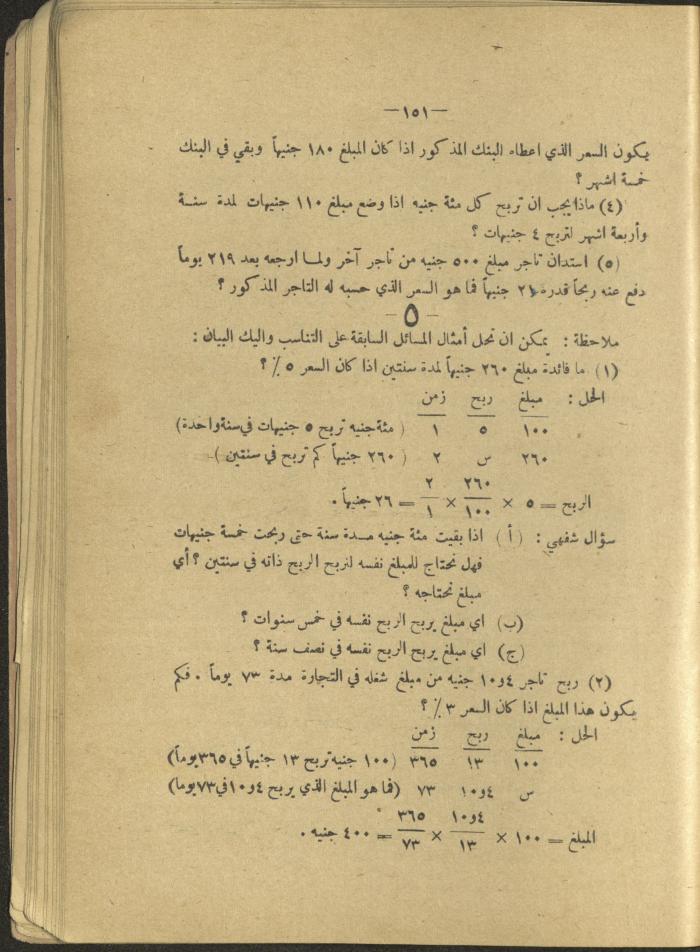 —١٥١—
يكون السعر الذي اعطاه البنك المذكور اذا كان المبلغ ١٨٠ جنيهاً وبقي في البنك
خمسة اشهر ؟
(٤) ماذا يجب ان تربح كل مئة جنيه اذا وضع مبلغ ١١٠ جنيهات لمدة سنة
وأربعة اشهر لتربح ٤ جنيهات ؟
(٥) استدان تاجر مبلغ ٥٠٠ جنيه من تاجر آخر ولما ارجعه بعد ٢١٩ يوماً
دفع عنه ربحاً قدره ٢١ جنيهاً فما هو السعر الذي حسبه له التاجر المذكور ؟
- ٥ -
ملاحظة : يمكن ان تحل أمثال المسائل السابقة على التناسب واليك البيان :
(١) ما فائدة مبلغ ٢٦٠ جنيهاً لمدة سنتين اذا كان السعر ٥ ٪ ؟
الحل : مبلغ ربح زمن
١٠٠ ٥ ١ ( مئة جنيه تربح ٥ جنيهات في سنة واحدة )
٢٦٠ س ٢ ( ٢٦٠ جنيهاً كم تربح في سنتين )
الربح = ٥ × ٢٦٠/١٠٠ × ٢/١ = ٢٦ جنيهاً .
سؤال شفهي : ( أ ) اذا بقيت مئة جنيه مدة سنة حتى ربحت خمسة جنيهات
فهل نحتاج للمبلغ نفسه لنربح الربح ذاته في سنتين ؟ أي
مبلغ نحتاجه ؟
(ب) اي مبلغ يربح الربح نفسه في خمس سنوات ؟
(ج) اي مبلغ يربح الربح نفسه في نصف سنة ؟
(٢) ربح تاجر ٤و١٠ جنيه من مبلغ شغله في التجارة مدة ٧٣ يوماً . فكم
يكون هذا المبلغ اذا كان السعر ٣ ٪ ؟
الحل : مبلغ ربح زمن
١٠٠ ١٣ ٣٦٥ (١٠٠ جنيه تربح ١٣ جنيهاً في ٣٦٥ يوماً)
س ٤و١٠ ٧٣ (فما هو المبلغ الذي يربح ٤و١٠ في ٧٣ يوما)
المبلغ = ١٠٠ × ٤و١٠/١٣ × ٣٦٥/٧٣ = ٤٠٠ جنيه .